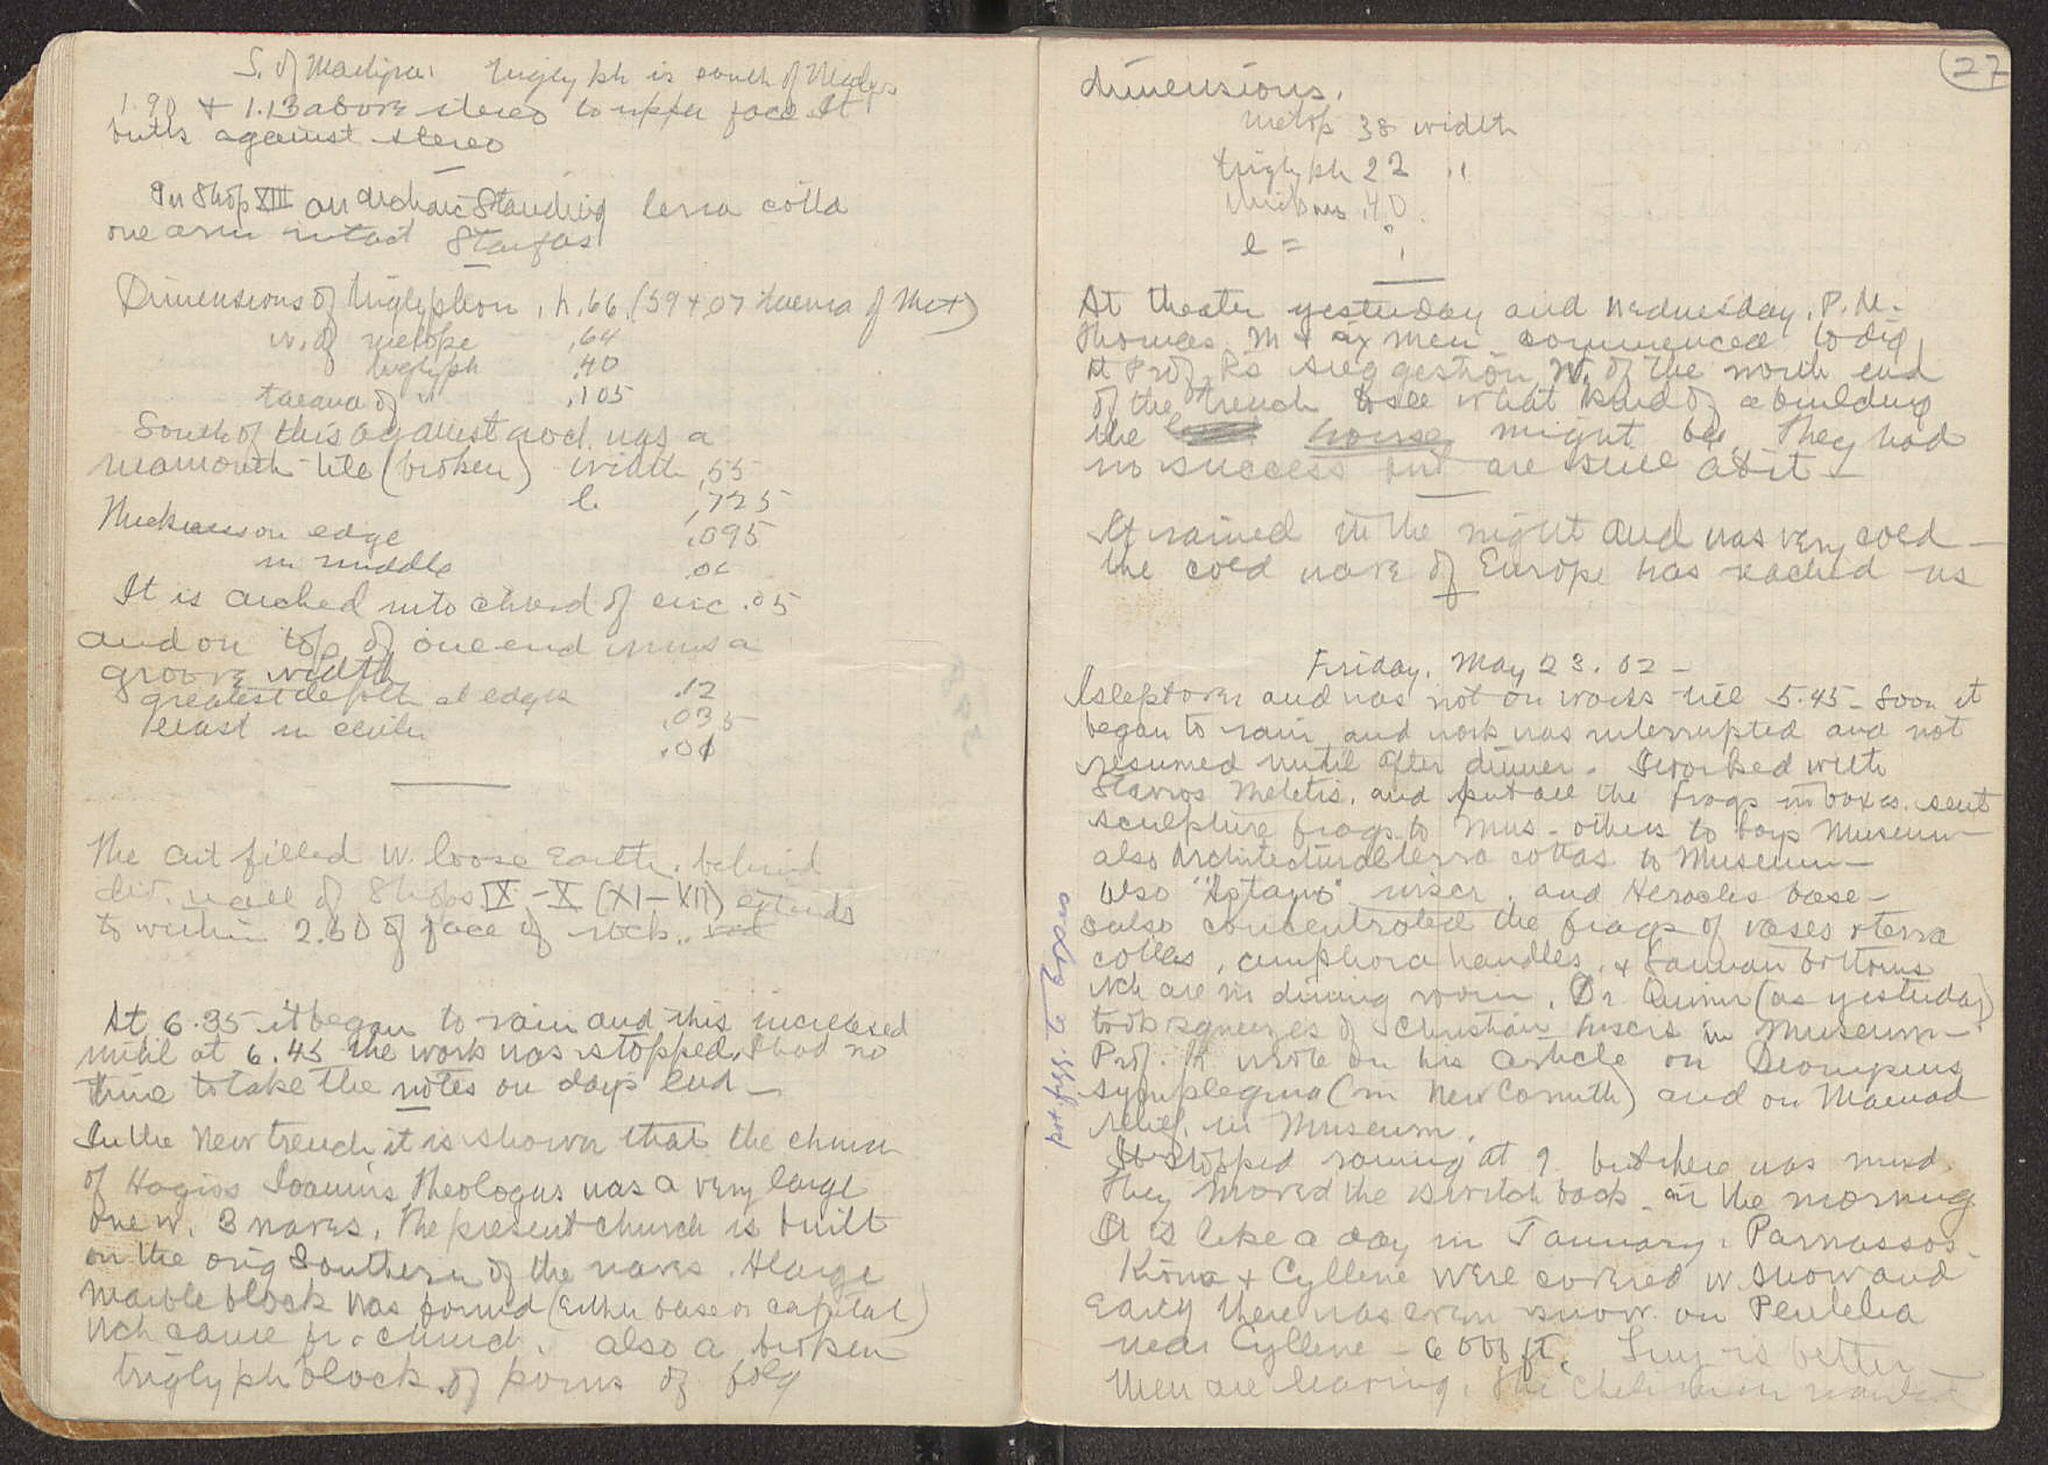 S. of triglyph is south of
1.90 + 1.13 above stereo to upper face. It
butts against stereo
In Shop XIII an archaic Standing terra cotta
one arm intact
Dimensions of triglyphon, h. .66 (59 + .07 taenia of Met)
w. of metope .64
triglyph .40
taenia of " .105
South of this against god. was a
mammoth tile (broken) width .55
l. .725
Thickness on edge .095
in middle
It is arched into chord of circ .05
and on top of one end runs a
groove width .12
greatest depth at edges .035
least in center .01
The cut filled w. loose earth, behind
div. wall of Shops IX-X (XI-XII) extends
to within 2.60 of face of rock.
At 6.35 it began to rain and this increased
until at 6.45 the work was stopped. I had no
time to take the notes on day's end —
In the New trench it is shown that the church
of Hagios Ioannis Theologus was a very large
one w. 3 naves. The present church is built
on the orig Southern of the naves. A large
marble block was found (either base or capital)
wch came fr. church. also a broken
triglyph block of poros of folg
27
dimensions.
metop 38 width
triglyph 22 "
thickness .40.
l = ?
At theater yesterday and Wednesday, P.M.
Thomas M + six men commenced to dig
at Prof. R's suggestion W. of the north end
of the trench to see what kind of a building
the house might be. They had
no success but are still at it —
It rained in the night and was very cold —
the cold wave of Europe has reached us
Friday, May 23. 02 —
I slept over and was not on works till 5.45 — Soon it
began to rain and work was interrupted and not
resumed until after dinner. I worked with
Stavros Meletis, and put all the frags in boxes. sent
sculpture frags to Mus — others to boys Museum
also Architectural terra cottas to Museum —
also and Heracles base —
also concentrated the frags of vases + terra
cottas, amphora handles, + Samian bottoms
wch are in dining room. Dr. Quinn (as yesterday)
took squeezes of Christian inscrs in Museum —
Prof. R wrote on his article on
symplegma (in New Corinth) and on Maenad
relief, in Museum.
It stopped raining at 9 but there was mud.
They moved the switch back in the morning
It is like a day in January. Parnassos —
Kiona + Cyllene were covered w. snow and
early there was even snow on
near Cyllene — 6000 ft. is better —
Men are leaving. The
pot. frgg. to boxes